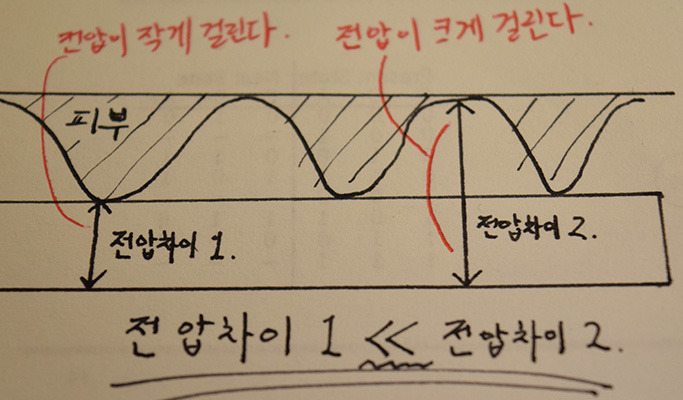 전압이 작게 걸린다.
전압이 크게 걸린다.
피부
전압차이 1.
전압차이 2.
전압차이 1 << 전압차이 2.